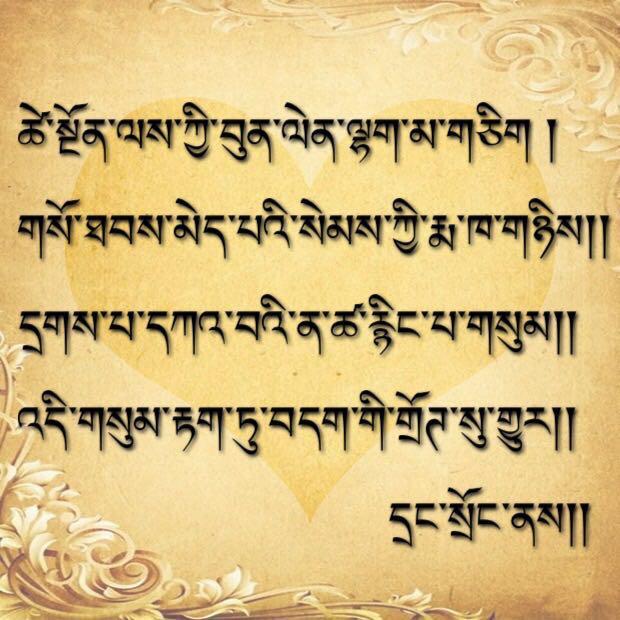 ཚེ་སྔོན་ལས་ཀྱི་བུན་ལེན་ལྷག་མ་གཅིག །
གསོ་ཐབས་མེད་པའི་སེམས་ཀྱི་རྨ་ཁ་གཉིས།།
དྲགས་པ་དཀའ་བའི་ན་ཚ་རྙིང་པ་གསུམ།།
འདི་གསུམ་རྟག་ཏུ་བདག་གི་གྲོཊ་སུ་གྱུར།།
དྲང་སྲོང་ནས།།